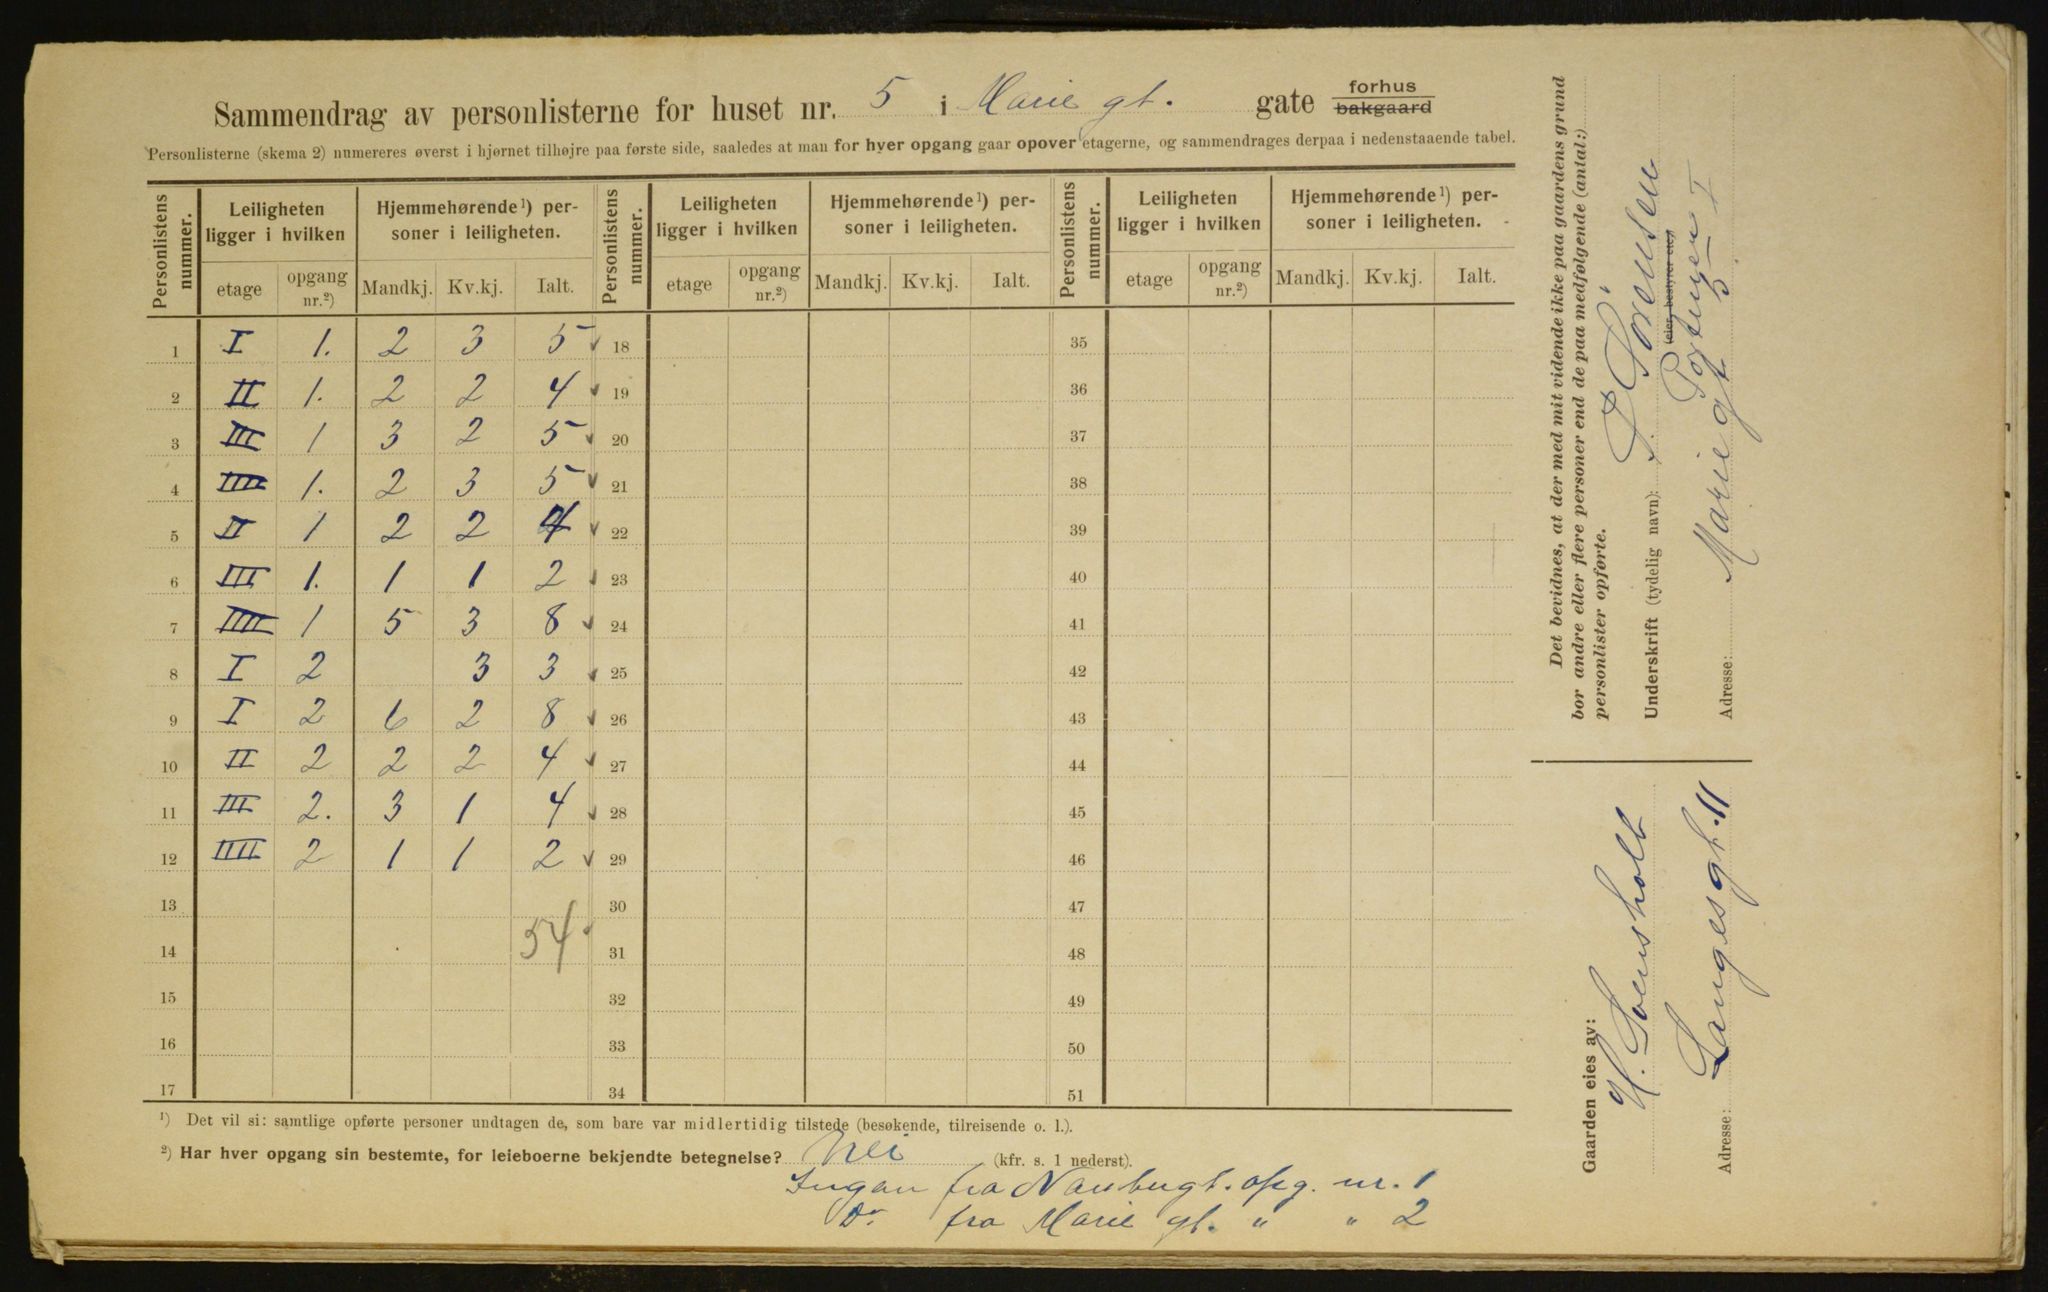 Sammendrag av personlisterne for huset nr. 5 i Marie gt. gate forhus bakgaard
Personlisterne (skema 2) numereres øverst i hjørnet tilhøjre paa første side, saaledes at man for hver opgang gaar opover etagerne, og sammendrages derpaa i nedenstaaende tabel.
Personlistens nummer. Leiligheten ligger i hvilken Hjemmehørende ¹) personer i leiligheten. Personlistens nummer. Leiligheten ligger i hvilken Hjemmehørende ¹) personer i leiligheten. Personlistens nummer. Leiligheten ligger i hvilken Hjemmehørende ¹) personer i leiligheten.
etage opgang nr.²) Mandkj. Kv.kj. Ialt. etage opgang nr.²) Mandkj. Kv.kj. Ialt. etage opgang nr.²) Mandkj. Kv.kj. Ialt.
1 I 1. 2 3 5 18 35
2 II 1. 2 2 4 19 36
3 III 1 3 2 5 20 37
4 IIII 1. 2 3 5 21 38
5 II 1 2 2 4 22 39
6 III 1. 1 1 2 23 40
7 IIII 1 5 3 8 24 41
8 I 2 3 3 25 42
9 I 2 6 2 8 26 43
10 II 2 2 2 4 27 44
11 III 2. 3 1 4 28 45
12 IIII 2 1 1 2 29 46
13 30 47
14 54 31 48
15 32 49
16 33 50
17 34 51
¹) Det vil si: samtlige opførte personer undtagen de, som bare var midlertidig tilstede (besøkende, tilreisende o. l.).
²) Har hver opgang sin bestemte, for leieboerne bekjendte betegnelse? Nei (kfr. s. 1 nederst).
fra opg. nr. 1
Do fra Marie gt. " " 2
Det bevidnes, at der med mit vidende ikke paa gaardens grund
bor andre eller flere personer end de paa medfølgende (antal:)
personlister opførte.
Underskrift (tydelig navn): Sørensen
(eier, bestyrer etc.)
Adresse: Marie gt 5 I
Gaarden eies av:
H.
Adresse: Langesgt. 11